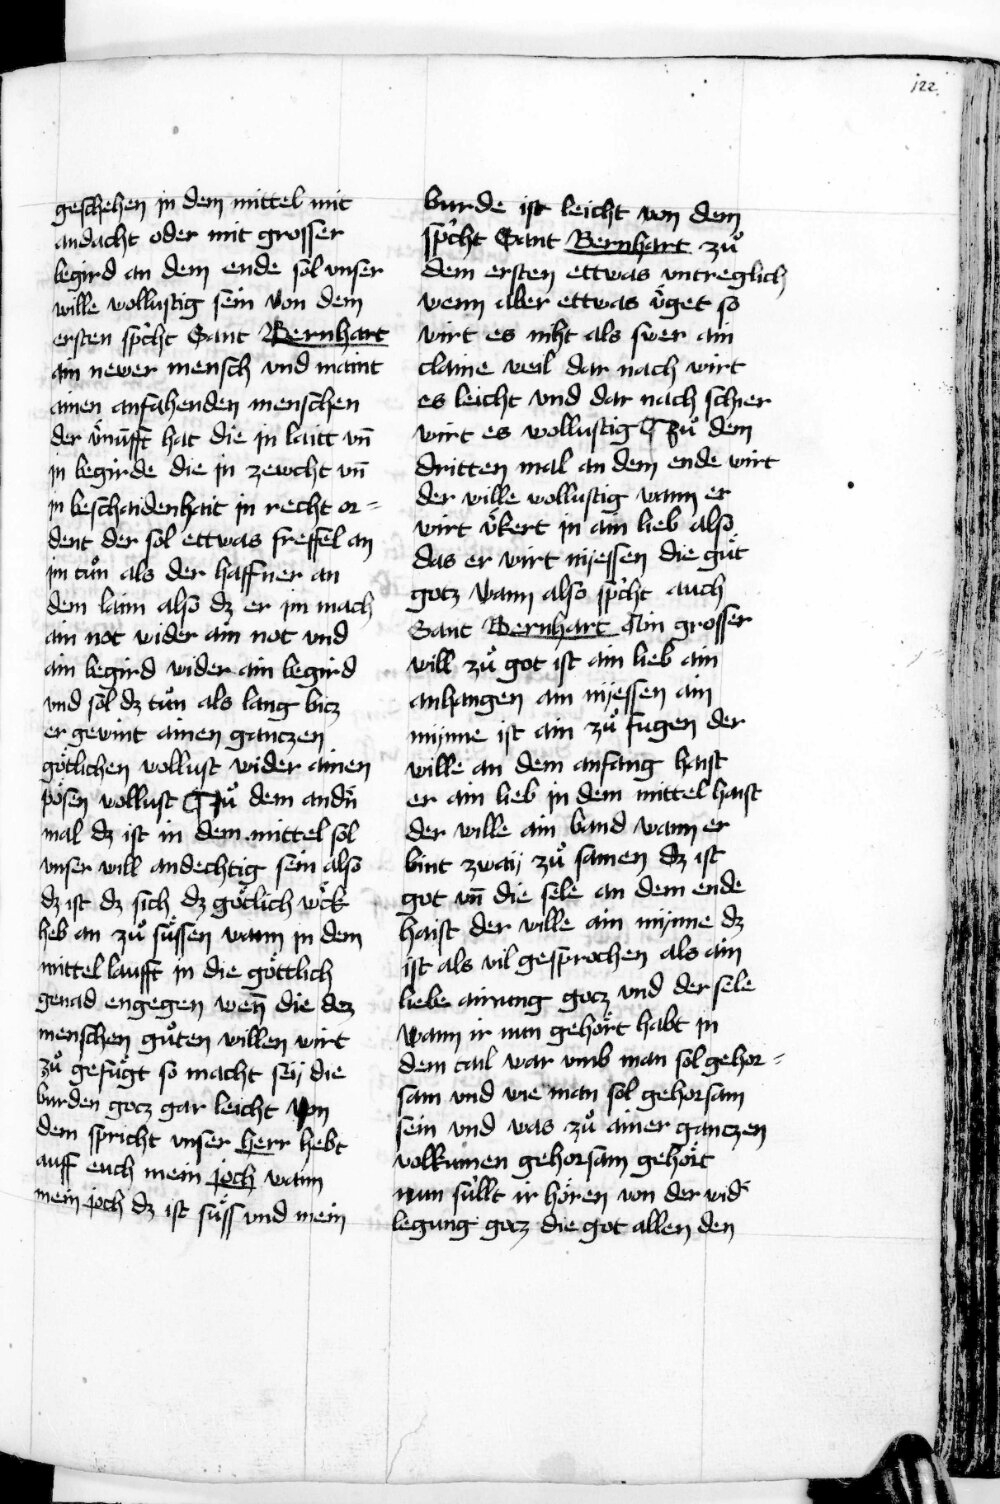 122
geschehen in dem mittel mit
andacht oder mit grosser
begird an dem ende sol vnser
wille wollustig sein Von dem
ersten spᵉcht Sant Bernhart
ain newer mensch vnd maint
ainen anfahenden menschen
der v̈nufft hat die in laitt vn̄
in begirde die in zewcht vn̄
in beschaidenhait in recht or=
dent der sol ettwas freffel an
im tuͦn als der haffner an
dem laim also dz er im mach
ain not wider ain not vnd
ain begird wider ain begird
vnd sol dz tuͦn als lang bicz
er gewint ainen ganczen
götlichen wollust wider ainen
pösen wollust Zuͦ dem andn̄
mal dz ist in dem mittel sol
vnser will andechtig sein also
dz ist dz sich dz götlich wͤck
heb an zuͦ süssen wann in dem
mittel laufft in die göttlich
genad engegen wen̄ die dez
menschen guͦten willen wirt
zuͦ gefuͤgt so macht seÿ die
burden gocz gar leicht Von
dem spricht vnser herr hebt
auff euch mein joch wann
mein joch dz ist süss vnd mein
burde ist leicht von dem
spᵉcht Sant Bernhart zuͦ
dem ersten ettwas vntreglich
wenn aber ettwas v̈get so
wirt es niht als swer ain
claine weil dar nach wirt
es leicht vnd dar nach schier
wirt es wollustig Zuͦ dem
dritten mal an dem ende wirt
der wille wollustig wann er
wirt v̈kert in ain lieb also
das er wirt niessen die güt
gotz Wann also spᵉcht auch
Sant Bernhart Ain grosser
will zuͦ got ist ain lieb ain
anhangen ain niessen ain
mÿnne ist ain zuͦ fugen der
wille an dem anfang haist
er ain lieb in dem mittel haist
der wille ain band wann er
bint zwaÿ zuͦ samen dz ist
got vn̄ die sele an dem ende
haist der wille ain mÿnne dz
ist als vil gesprochen als ain
liebe ainung gocz vnd der sele
Wann ir nun gehört habt in
dem tail war vmb man sol gehor=
sam vnd wie man sol gehorsam
sein vnd was zuͦ ainer ganczen
volkumen gehorsam gehört
nun süllt ir hören von der wid̄
legung gocz die got allen den